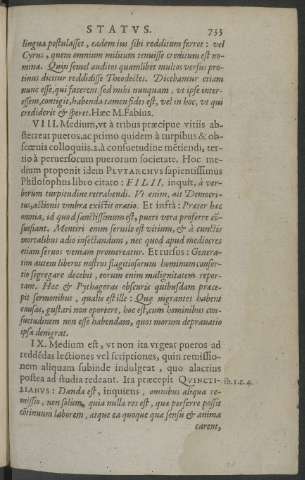 STATVS. 733
lingua postulasset, eadem ius sibi redditum ferret: vel
Cyrus, quem omnium militum tenuisse creditum est no-
mina. Quin semel auditos quamlibet multos versus pro-
tinus dicitur reddidisse Theodectes. Dicebantur etiam
nunc esse, qui facerent, sed mihi nunquam, vt ipse inter-
essem, contigit, habenda tamen fides est, vel in hoc, vt qui
crediderit & speret. Hæc M. Fabius.
VIII. Medium, vt à tribus præcipue vitiis abs-
terreat pueros. ac primo quidem à turpibus & ob-
scœnis colloquiis. 2. à consuetudine mẽtiendi, ter-
tio à peruersorum puerorum societate. Hoc me-
dium proponit idem PLVTARCHVS sapientissimus
Philosophus libro citato: FILII, inquit, à ver-
borum turpitudine retrahendi. Vt enim, ait Democri-
tus, actionis vmbra existit oratio. Et infrà: Præter hoc
omnia, id quod sanctissimum est, pueri vera proferre cõ-
suefiant. Mentiri enim seruile est vitium, & à cunctis
mortalibus odio insectandum, nec quod apud mediocres
etiam seruos veniam promereatur. Et rursus: Genera-
tim autem liberos nostros flagitiosorum hominum consor-
tio segregare decebit, eorum enim malignitatem repor-
tant. Hoc & Pythagoras obscuris quibusdam præce-
pit sermonibus, qualis est ille: Quæ nigrantes habent
caudas, gustari non oportere, hoc est, cum hominibus con-
suetudinem non esse habendam, quos morum deprauatio
ipsa denigrat.
IX. Medium est, vt non ita vrgeat pueros ad
reddẽdas lectiones vel scriptiones, quin remissio-
nem aliquam subinde indulgeat, quo alacrius
postea ad studia redeant. Ita præcepit QVINCTI- lib. 1. c. 4.
LIANVS: Danda est, inquiens, omnibus aliqua re-
missio, non solum, quia nulla res est, quæ perferre possit
cõtinuum laborem, atque ea quoque quæ sensu & anima
carent,